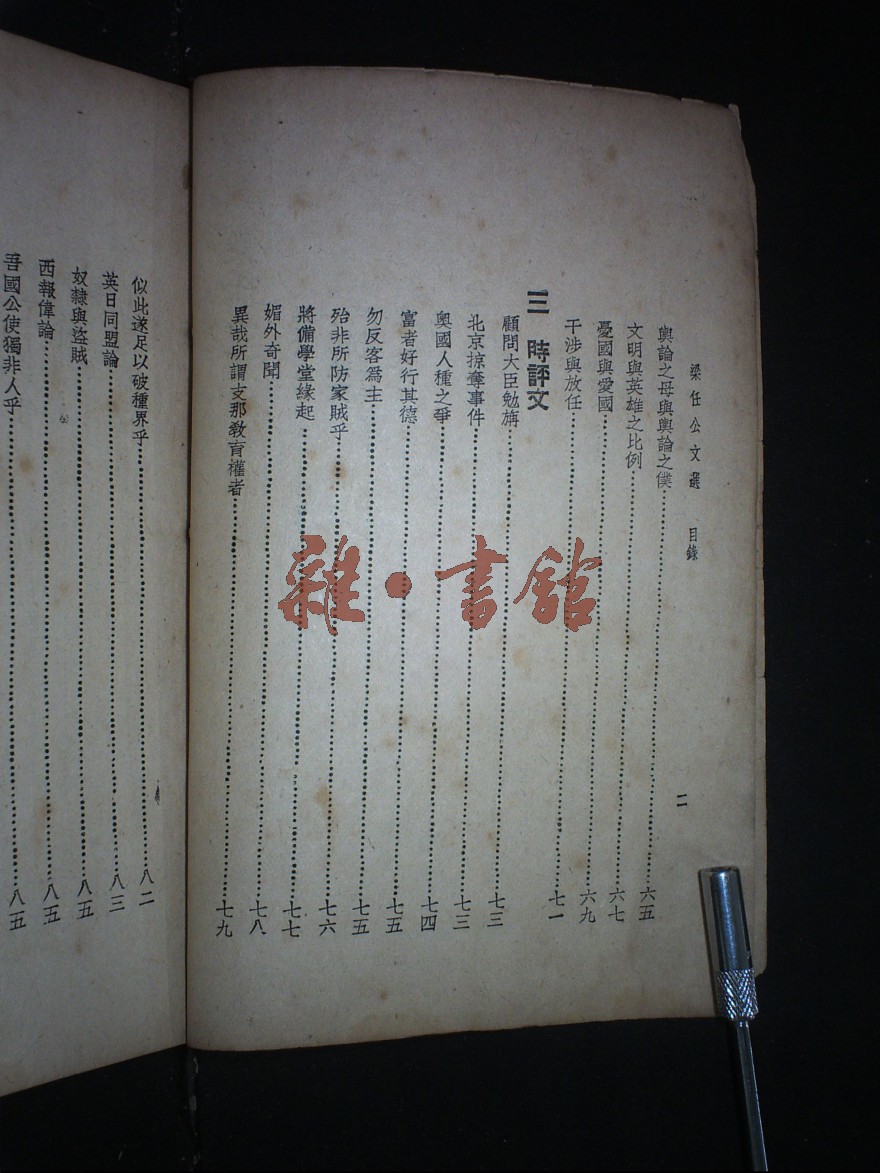 梁任公文選 目錄
二
輿論之母與輿論之僕 六五
文明與英雄之比例 六七
憂國與愛國 六九
干涉與放任 七一
三 時評文
顧問大臣勉旃 七三
北京掠奪事件 七三
奧國人種之爭 七四
富者好行其德 七五
勿反客爲主 七五
殆非所防家賊乎 七六
將備學堂緣起 七七
媚外奇聞 七八
異哉所謂支那敎育權者 七九
似此遂足以破種界乎 八二
英日同盟論 八三
奴隸與盜賊 八五
西報偉論 八五
吾國公使獨非人乎 八五
雜·書館